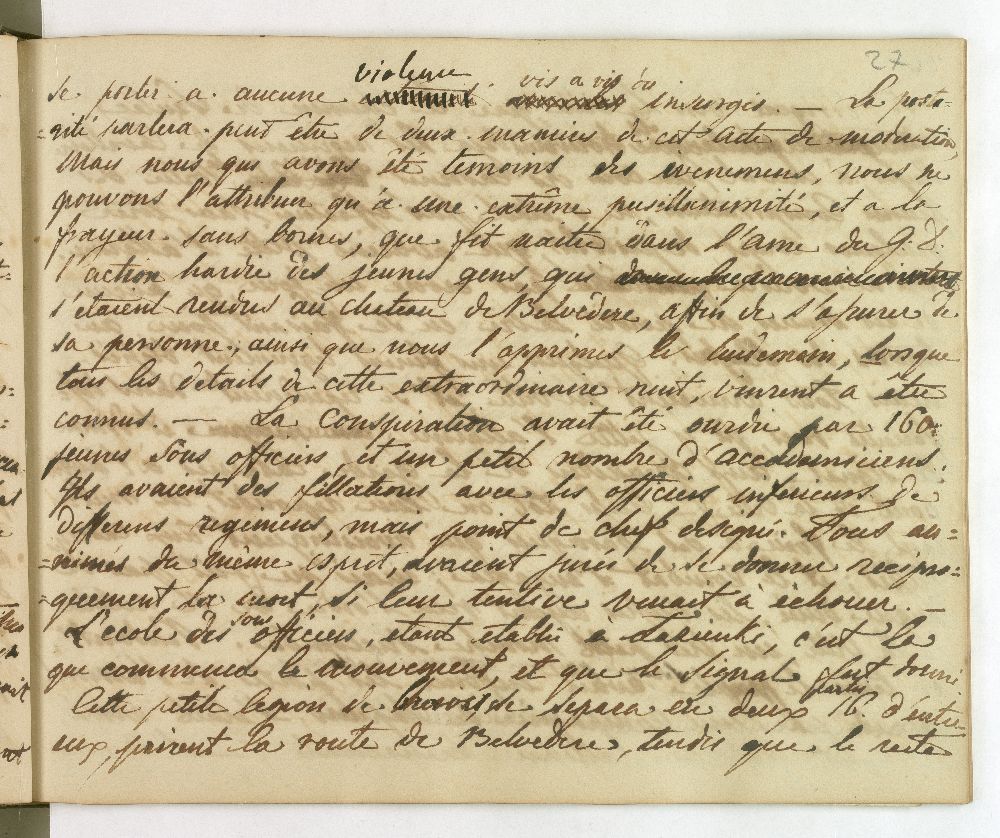 27
violence vis a vis des
se porter a aucune insurgés. — La posté-
=rité parlera peut être de deux manières de cet acte de modération,
Mais nous qui avons été temoins des evenemens, nous ne
pouvons l'attribuer qu'à une extrême pusillanimité, et a la
frayeur sans bornes, que fit naitre dans l'ame du G. D.
l'action hardie des jeunes gens, qui
s'étaient rendus au chateau de Belvédère, affin de s'assurer de
sa personne, ainsi que nous l'apprimes le lendemain, lorsque
tous les details de cette extraordinaire nuit, vinrent a être
connus. — La conspiration avait été ourdie par 160
jeunes sous officiers, et un petit nombre d'accademiciens.
Ils avaient des filiations avec les officiers inferieurs de
differens regimens, mais point de chef designé. Tous an=
=nimés du même esprit, avaient jurés de se donner recipro=
=quement la mort, si leur tentive venait à échouer. —
L'ecole des sous officiers, etant etabli à Lazienki, c'est là
que commenca le mouvement, et que le signal fut donné
Cette petite legion de heros, se separa en deux partis, 16 d'entre
eux, prirent la route de Belvedere, tandis que le reste